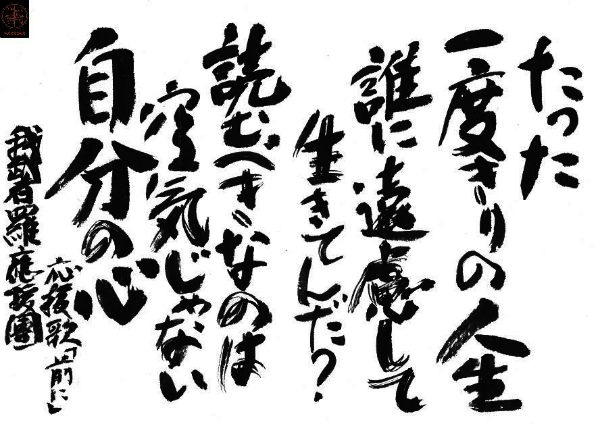 たった
一度きりの人生
誰に遠慮して
生きてんだ?
読むべきなのは
空気じゃない
自分の心
応援歌「前に」
我武者羅應援團